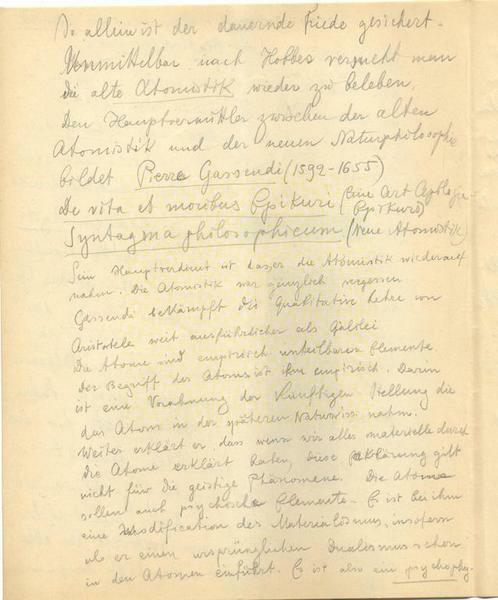 So allein ist der dauernde Friede gesichert.
Unmittelbar nach Hobbes versucht man
die alte Atomistik wieder zu beleben.
Den Hauptvermittler zwischen der alten
Atomistik und der neuen Naturphilosophie
bildet Pierre Gassendi (1592-1655)
De vita et moribus Epikuri (Eine Art Apologie
Epikurs)
Syntagma philosophicum (Neue Atomistik)
Sein Hauptverdienst ist dass er die Atomistik wiederauf
nahm. Die Atomistik war gänzlich vergessen
Gassendi bekämpft die Qualitative Lehre von
Aristoteles weit ausführlicher als Galilei
Die Atome sind empirisch unteilbare Elemente
Der Begriff des Atoms ist ihm empirisch. Darin
ist eine Vorahnung der künftigen Stellung die
das Atom in der späteren Naturwiss. nahm.
Weiter erklärt er dass wenn wir alles materielle durch
die Atome erklärt haben, diese Erklärung gilt
nicht für die geistige Phänomene. Die Atome
sollen auch psychische Elemente. Es ist bei ihm
eine Modification des Materialismus, insofern
als er einen ursprünglichen Dualismus schon
in den Atomen einführt. Es ist also ein psychophy-